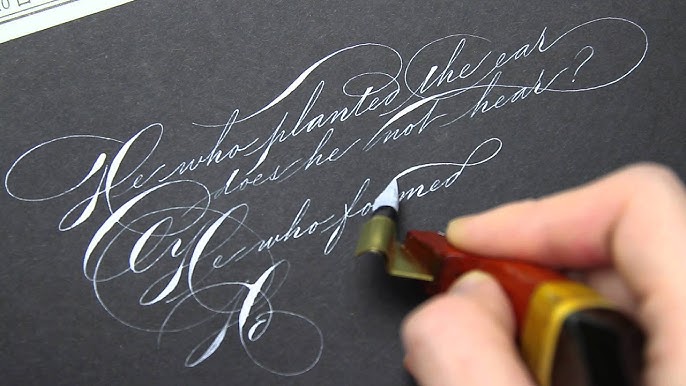 He who planted the ear
does he not hear?
He who formed